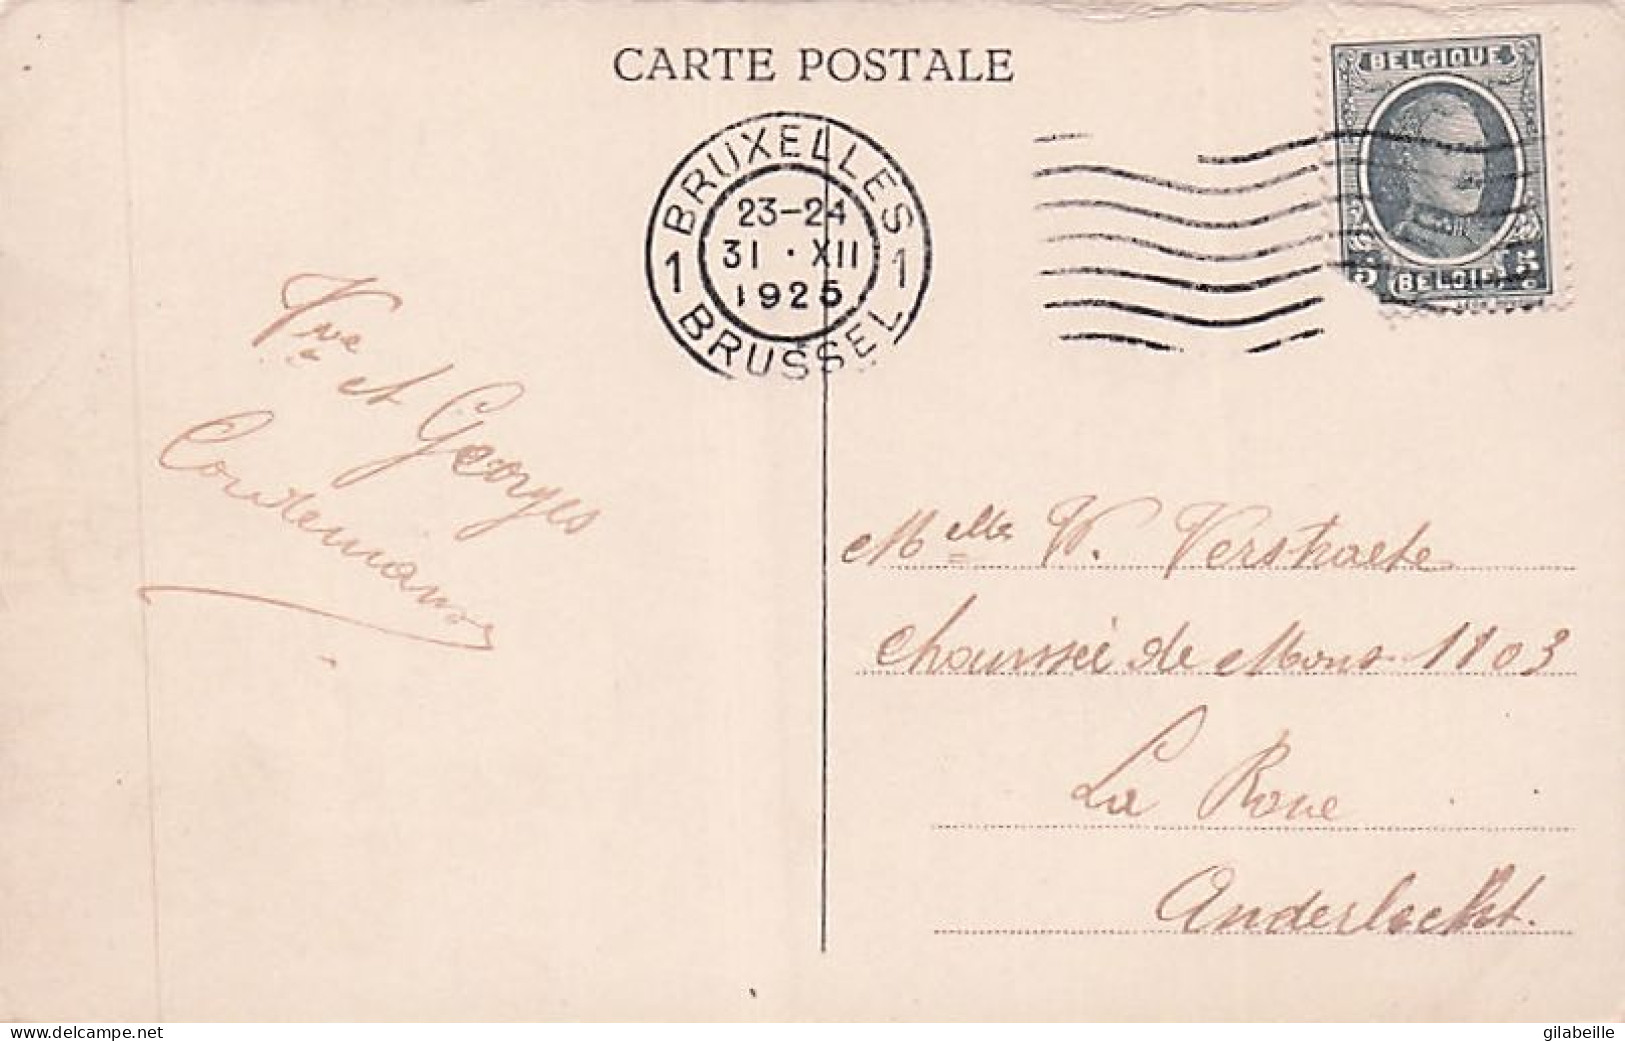 CARTE POSTALE
BELGIQUE
5 BELGIË 5
BRUXELLES
23-24
31 · XII
1925
1 1
BRUSSEL
Vve et Georges
Melle V. Verstraete
Chaussée de Mons 1103
La Roue
Anderlecht.
delcampe.net
gilabeille